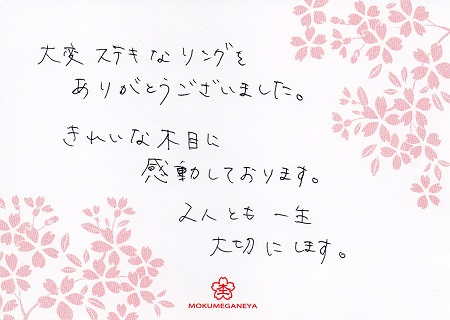 大変 ステキな リングを
ありがとうございました。
きれいな木目に
感動しております。
2人とも 一生
大切にします。
MOKUMEGANEYA